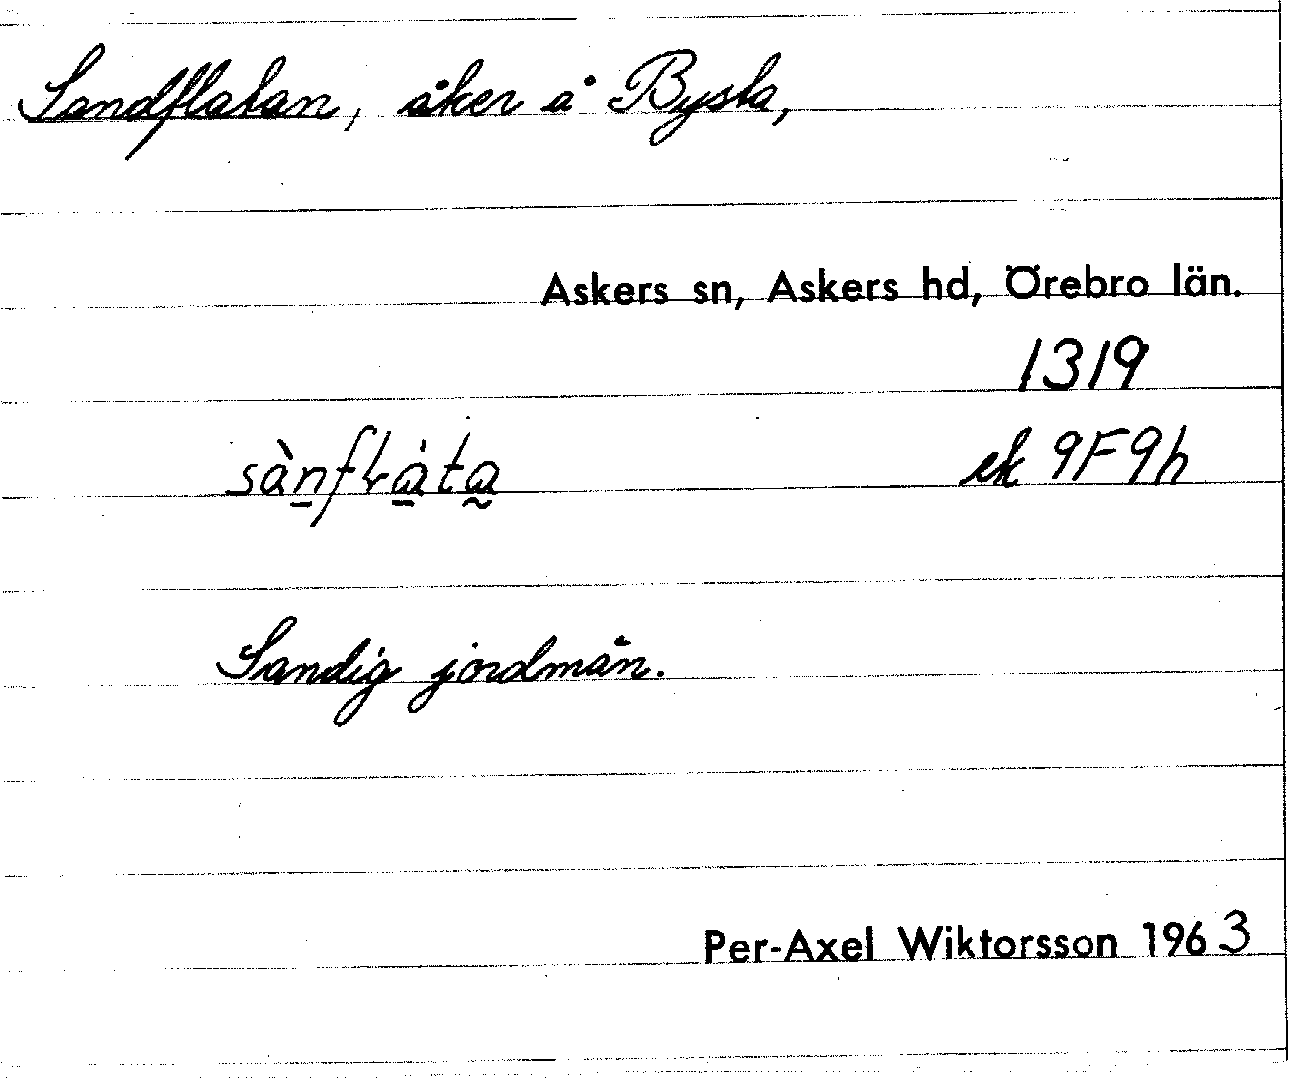 Sandflatan, åker å Bysta,
Askers sn, Askers hd, Örebro län.
1319
sàn̲fɫà̲ta̰ ek 9F9h
Sandig jordmån.
Per-Axel Wiktorsson 1963